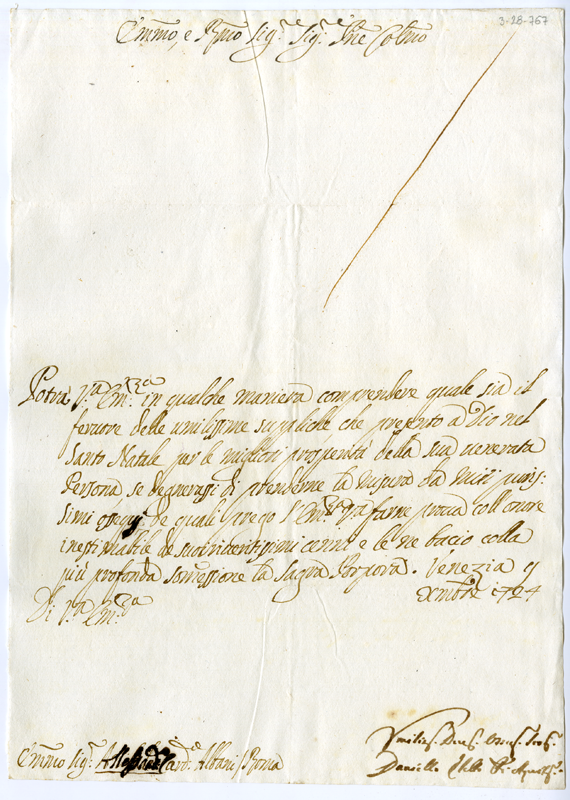 3-28-767
Em̃mo, e Rm̃o Sig.r Sig.r Pñe Colm̃o
Potrà V.a Em.za in qualche maniera comprendere quale sia il
fervore delle umilissime suppliche che presento a Dio nel
Santo Natale per le migliori prosperità della sua venerata
Persona, se degnerassi di prenderne la misura da miei puris:
simi ossequj, de quali prego l'Em.za V.ra farne prova coll'onore
inestimabile de suoi riveritissimi cenni e le ne bacio colla
più profonda somessione la sagra Porpora. Venezia 9
Xmbre 1724
Di V.a Em.za
Em̃mo Sig.r Card.e Albani / Roma
Daniello